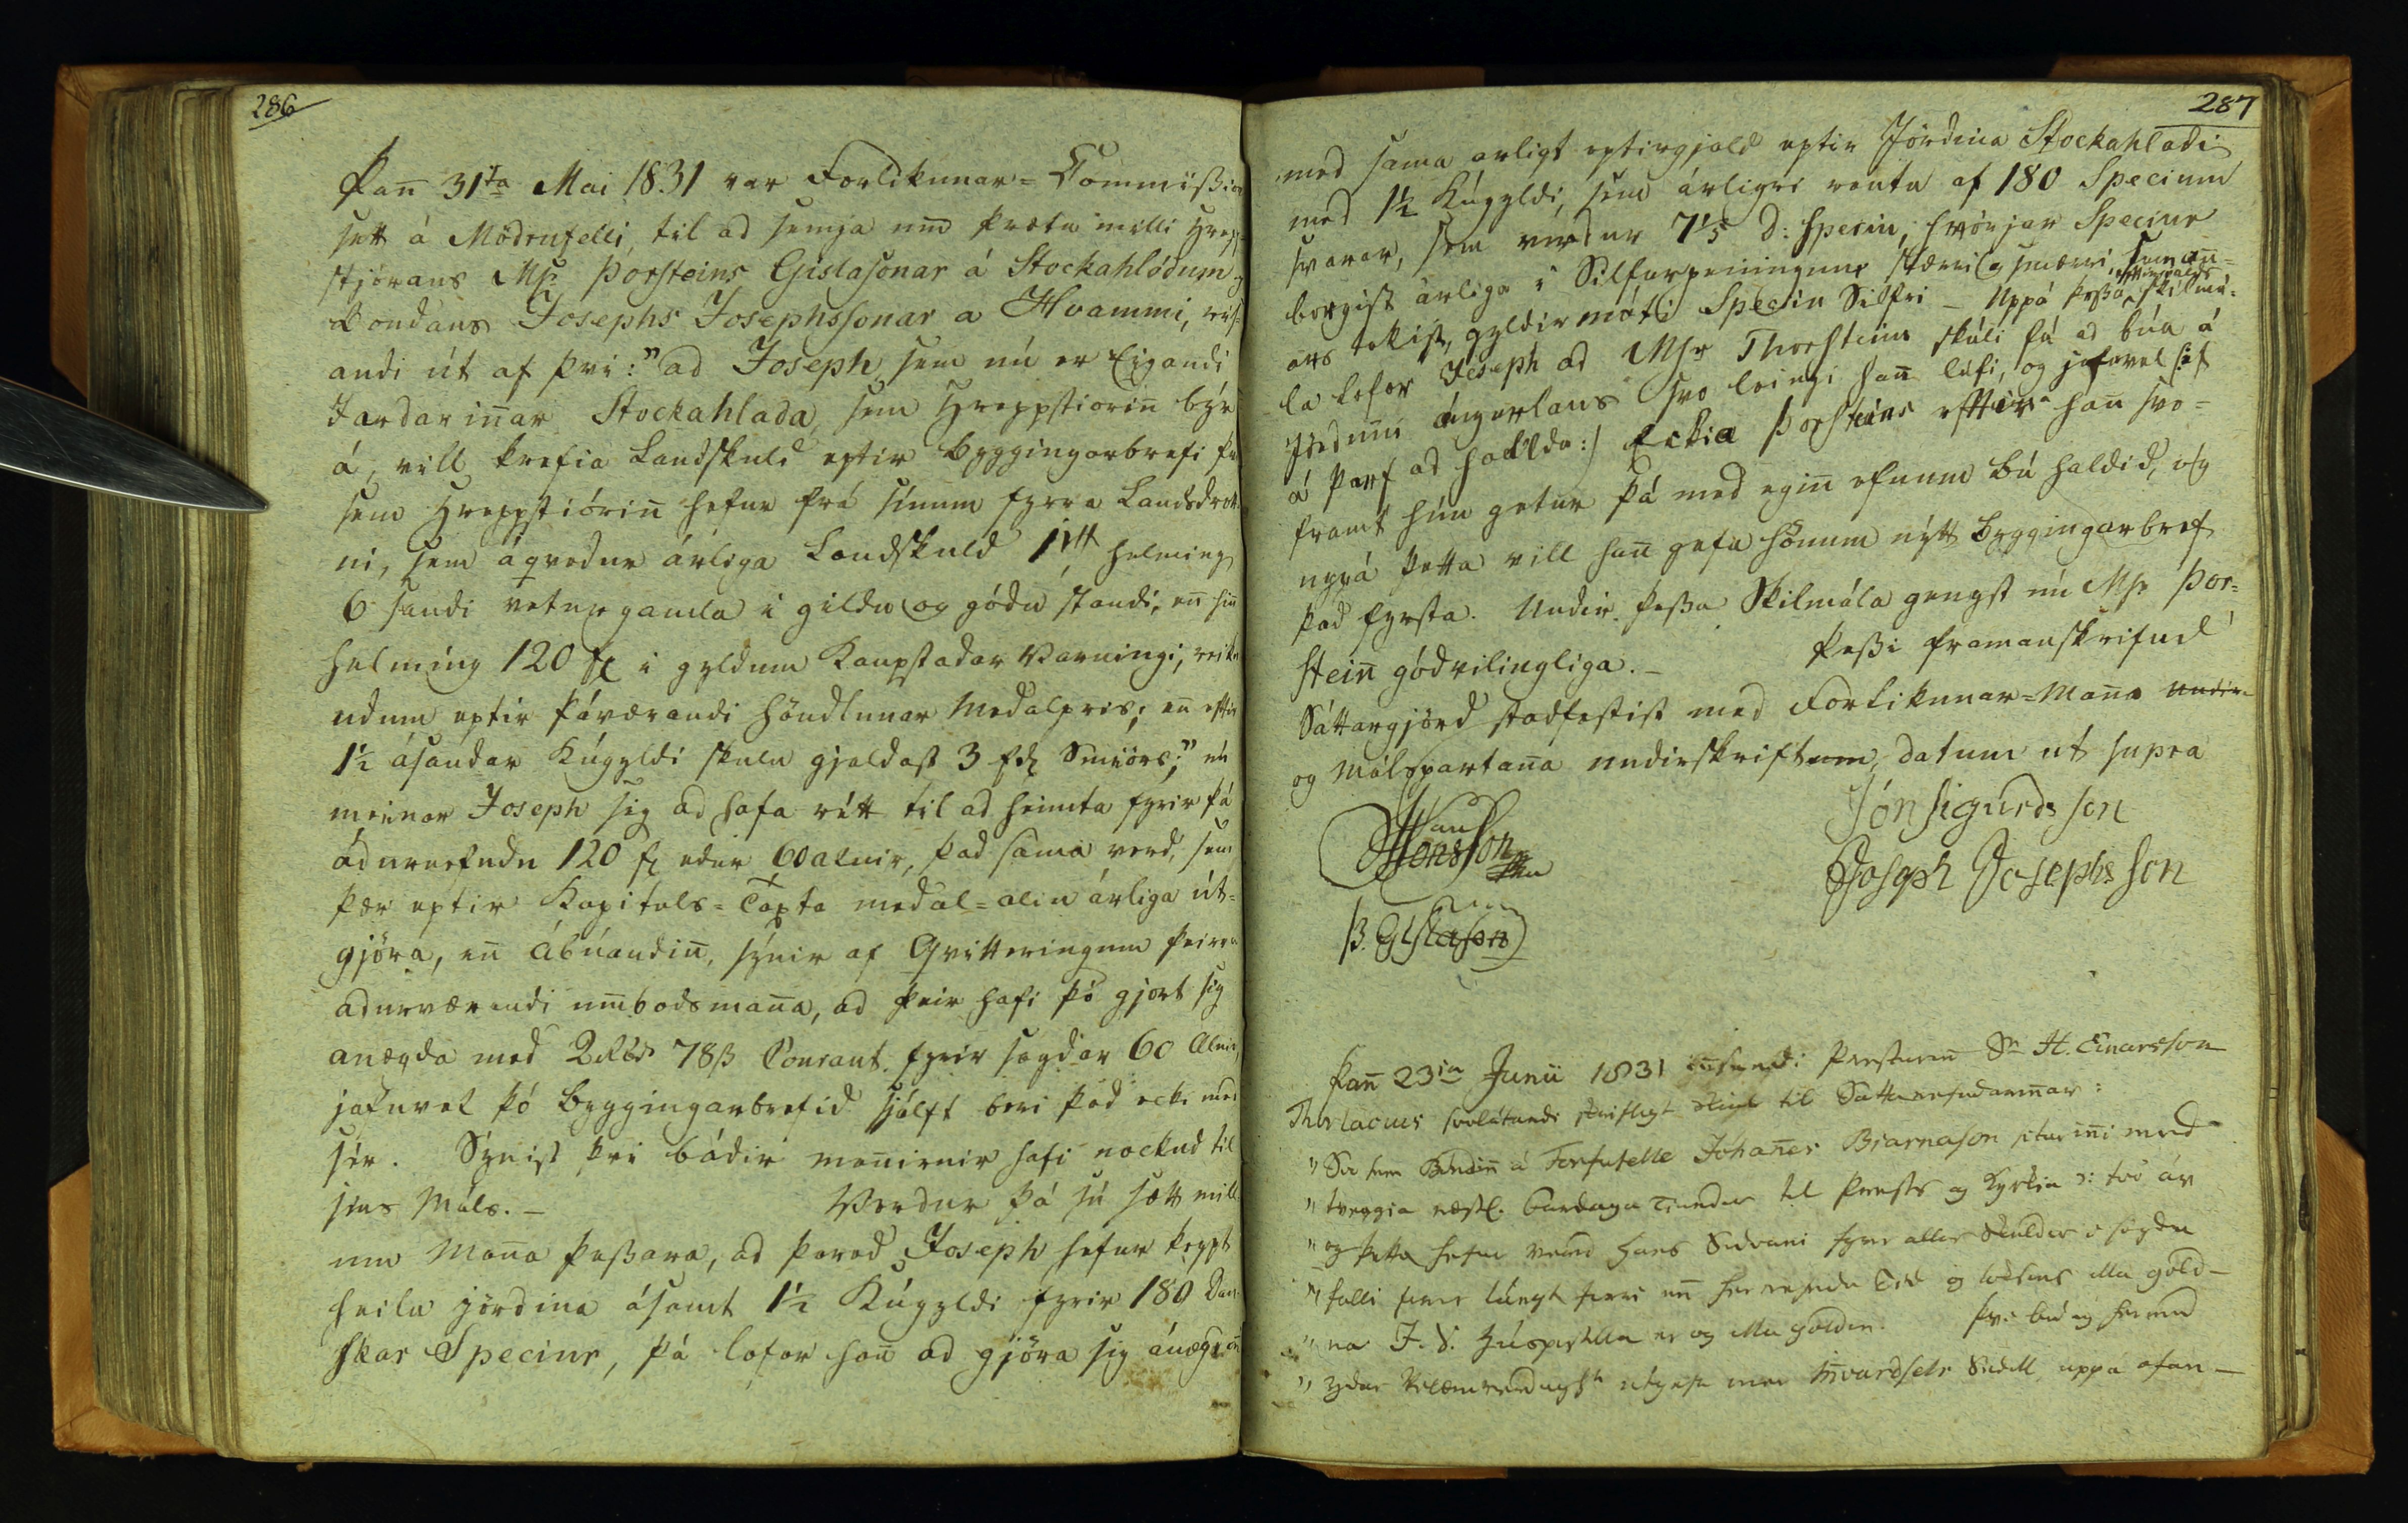 286
Þan̄ 31ta Mai 1831 var Forlikunar-Commission
sett á Mödrufelli, til ad semja um þrætu milli Hrepp-
stjórans Mſr Þorsteins Gislasonar á Stockahlödum og
bondans Josephs Josephssonar a Hvammi, rís-
andi út af þvi: "ad Joseph, sem nú er Eigandi
Jardarin̄ar Stockahlada, sem Hreppstiorin̄ býr
á, vill krefia Landskuld eptir byggingarbrefi því
sem Hreppstiórin̄ hefur frá sínum fyrra Landsdrott
ni, sem áqvedur árliga Landskuld 1 helming
6 saudi veturgamla i gildu og gódu standi, en̄ hin̄
helming 120 f i gyldum Kaupstadar Varningi, reikn
udum eptir þáværandi höndlunar Medalpris; en̄ eftir
1½ ásaudar Kúgyldi skulu gjaldast 3 fd Smiörs;" nú
meinar Joseph sig ad hafa rétt til ad heimta fyrir þá
ádurnefndu 120 f edur 60 alnir, þad sama verd, sem
þær eptir Kapituls-Taxta medal-alin árliga út-
gjöra, en̄ Ábúandin̄, sýnir af Qvitteringum þeirra
adurværandi umbodsman̄a, ad þeir hafi þó gjört sig
anægda med 2 Rbd 78 ß Courant fyrir sagdar 60 Alnir,
jafnvel þó byggingarbrefid sjálft beri þad ecki med
sér. Synist þvi bádir man̄irnir hafi nockud til
sins Máls.- Verdur þá sú sætt mill
um Man̄a þessara, ad þared Joseph hefur keypt
heila jördina ásamt 1½ Kúgyldi fyrir 180 Dan-
skar Speciur, þá lofar han̄ ad gjöra sig ánægdan̄
287
med sama arligt eptirgjald eptir Jördina Stockahladi
med 1½ Kúgyldi, sem árligri rentu af 180 Specium
svarar, sem verdur 7⅕ d: Speciu, hvörjar Speciur
borgist árliga i Silfurpeningum stærri og smærri, sem an̄-
ars tekist, gyldir móti Speciu Silfri - Uppá þessa eptirgjalds skilmá-
la lofar Joseph ad Mſr Thorsteinn skuli fá ad búa á
Jördin̄i ángurlaus svo leingi han̄ lifi, og jafnvel (:ef
á þarf ad halda:) Eckia Þorsteins efttir han̄ svo-
framt hún getur þá med egin̄ efnum bú haldid, og
uppá þetta vill han̄ gefa hönum nýtt byggingarbref
þad fyrsta. Undir þessa Skilmála gengst nú Mſr Þor-
stein̄ gódvilingliga.- Þessi framanskrifud
Sáttargjörd stadfestist med Forlikunar-Man̄a undir-
og Málspartan̄a undirskriftum, datum ut supra
Jón Sigurdsson
Jonsson
Joseph Josephsson
Þ. Gislason
Þan̄ 23ia Junii 1831 in̄sendi Presturin̄ Sr H. Einarsson
Thorlacius svolátandi skriflegt til Sattanefndarin̄ar:
" Sa sem Bóndin̄ á Torfufelle Johan̄es Bjarnason situr in̄i med
" tveggia næstl. fardaga Tiundir til Prests og Kyrkiu ɔ: tvö ár
" og þetta hefur verid hans Sidvani fyrir allar Skuldir i sögdu
" falli fyrir lángt fram ... Tid og lodsens illa gold-
" na J. S. er og illa goldin. því bid eg hermed
" ydar Velæruverdugh. utgefa mér Sedil uppá ofan-